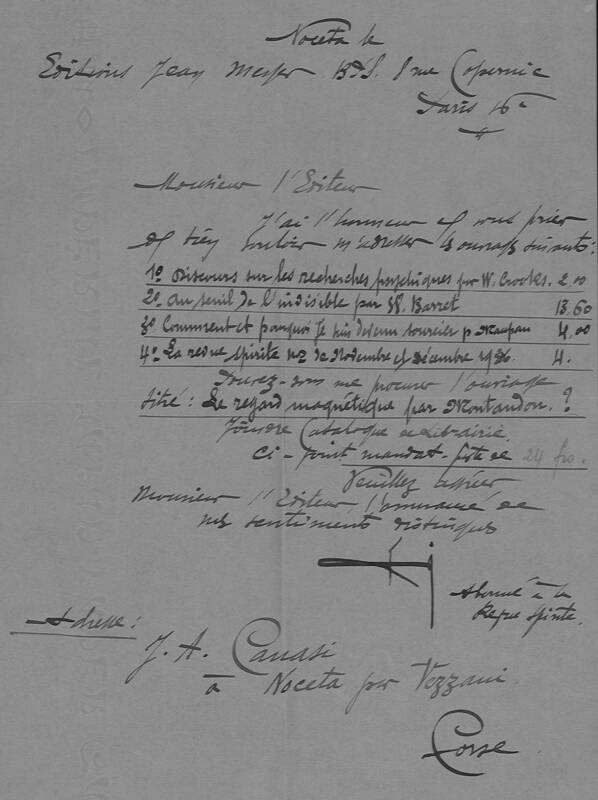 Noceta le
Editions Jean Meyer B.P.S. 8 rue Copernic
Paris 16e
Monsieur l'Editeur
J'ai l'honneur de vous prier
de bien vouloir m'adresser les ouvrages suivants:
1o Discours sur les recherches psychiques par W. Crooks. 2,00
2o au seuil de l'indisible par W. Barret 13,60
3o Comment et pourquoi je suis devenu sourcier p 4,00
4o La revue spirite nos de Novembre et décembre 1926. 4.
Pouvez-vous me procurer l'ouvrage
titré: Le regard magnétique par Montandon. ?
Joindre Catalogue de Librairie.
Ci-joint mandat-poste de 24 frs.
Veuillez agréer
Monsieur l'Editeur l'assurance de
mes sentiments distingués
Abonné à la
Revue spirite.
Adresse:
J. A. Canasi
à Noceta par Vezzani
Corse